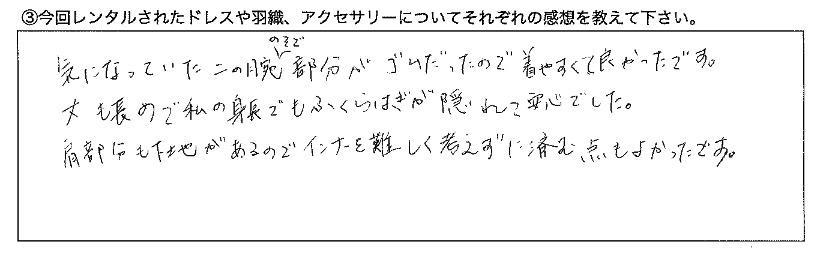 ③今回レンタルされたドレスや羽織、アクセサリーについてそれぞれの感想を教えて下さい。
のそで
気になっていた二の腕部分がゴムだったので着やすくて良かったです。
丈も長めで私の身長でもふくらはぎが隠れて安心でした。
肩部分も生地があるのでインナーを難しく考えずに済む点もよかったです。